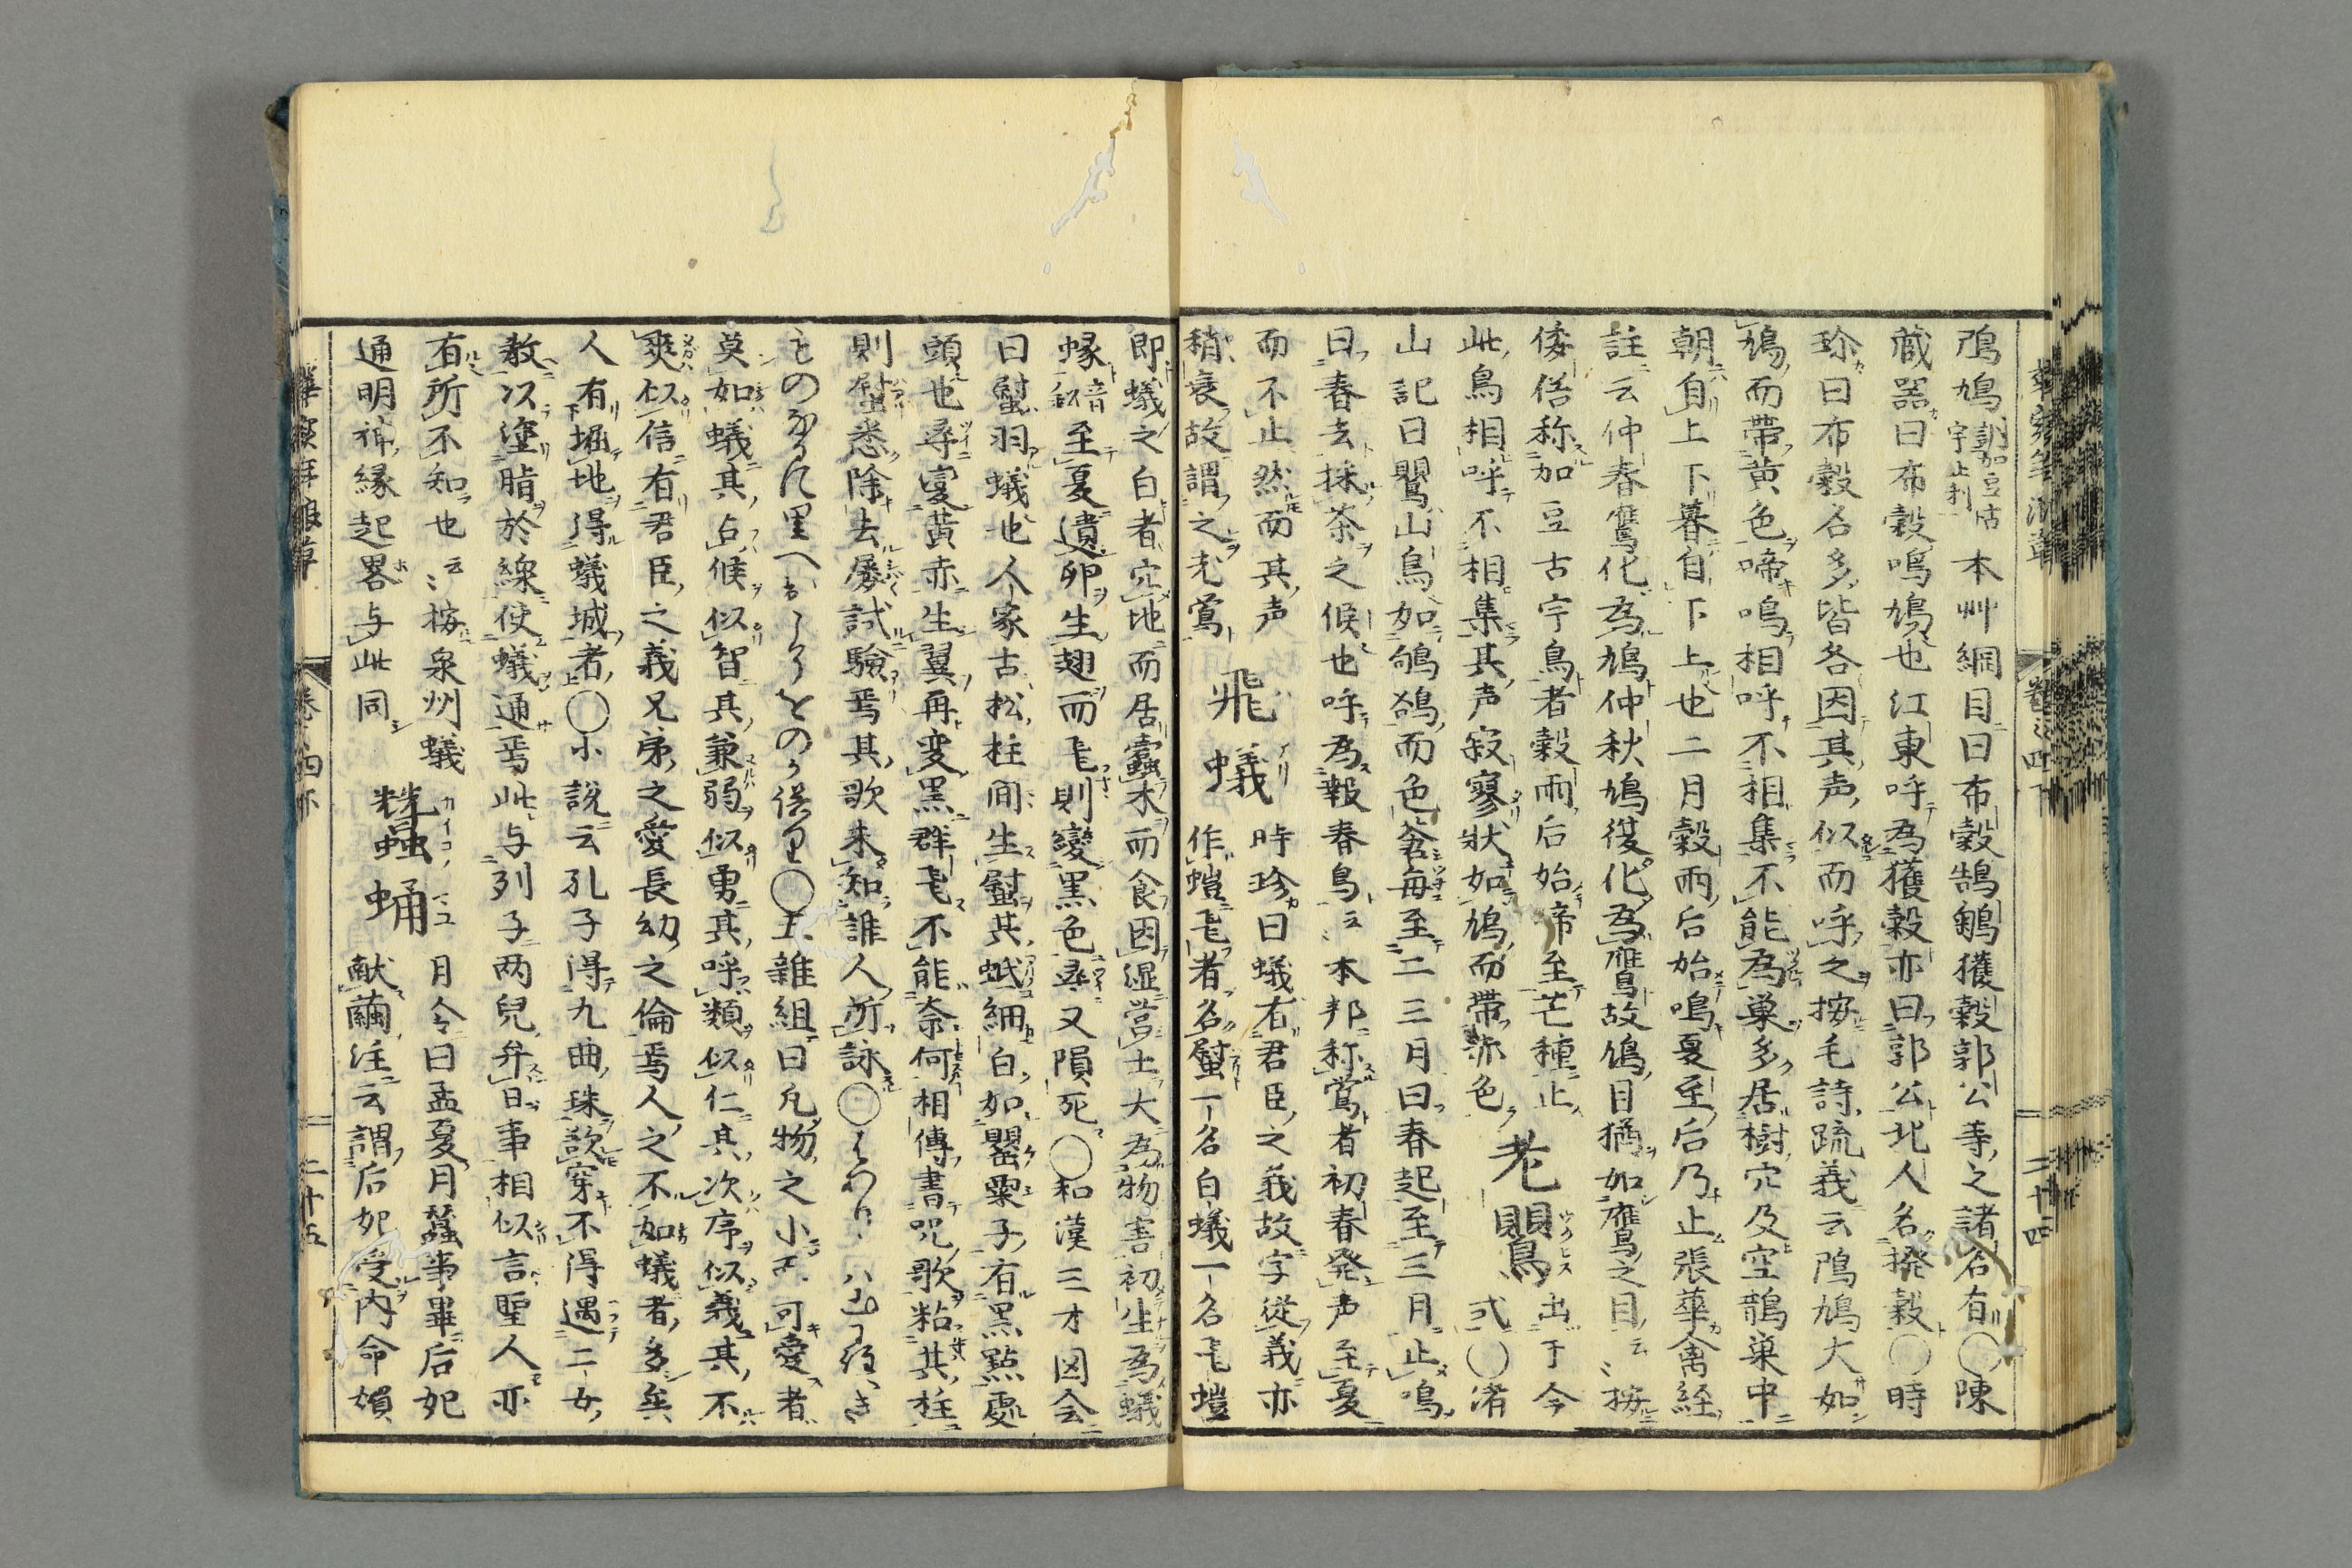 鳲鳩 訓加豆古宇止利 本艸綱目曰布穀鵠鵴獲穀郭公等之諸名有〇陳
蔵器曰布穀鳴鳩也江東呼為獲穀亦曰郭公北人名撥穀〇時
珍曰布穀名多皆各因其声似而呼之按毛詩疏義云鳲鳩大如
鳩而帶黄色啼鳴相呼不相集不能為巣多居樹穴及空鵲巣中
朝自上下暮自下上也二月穀雨后始鳴夏至后乃止張華禽経
註云仲春鷹化為鳩仲秋鳩復化為鷹故鳩目猶如鷹之目云〻按
倭俗称加豆古宇鳥者穀雨后始啼至芒種止
此鳥相呼不相集其声寂寥状如鳩而帶赤色 老鸎 出于今
山記曰鸎山鳥如鴝鵒而色蒼毎至二三月曰春起至三月止鳴
曰春去採茶之候也呼為報春鳥云〻本邦称鶯者初春発声至夏
而不止然而其声
稍衰故謂之老鶯 飛蟻 時珍曰蟻有君臣之義故字從義亦
作螘飛者名螱一名白蟻一名飛螘
即蟻之白者穴地而居蠹木而食因湿営土大為物害初生為蟻
蝝 音縁 至夏遺卵生翅而飛則變黒色尋又隕死〇和漢三才図会
曰螱羽蟻也人家古松柱間生螱其蚳細白如罌粟子有黒點處
頭也尋変黄赤生翼再変黒群飛不能奈何相傳書咒歌粘其柱
則螱悉除去屡試驗焉其歌未知誰人所詠
〇五雑組曰凡物之小而可愛者
莫如蟻其占候似智其兼弱似勇其呼類似仁其次序似義其不
爽似信有君臣之義兄弟之愛長幼之倫焉人之不如蟻者多矣
人有堀地得蟻城者〇小説云孔子得九曲珠欲穿不得遇二女
教以塗脂於線使蟻通焉此与列子两兒弁日事相似言聖人亦
有所不知也云〻按泉州蟻
通明神縁起畧与此同 蠶蛹 月令曰孟夏月蠶事畢后妃
献繭注云謂后妃受内命婦